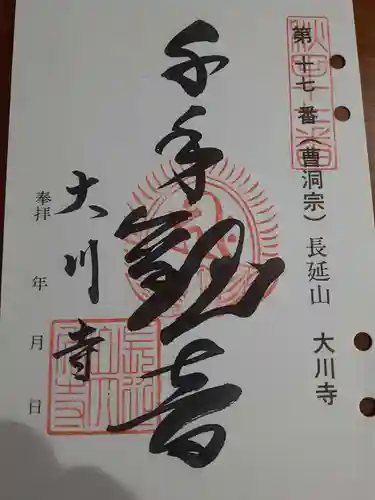 第十七番（曹洞宗）長延山 大川寺
千手観音
大川寺
奉拝 年 月 日